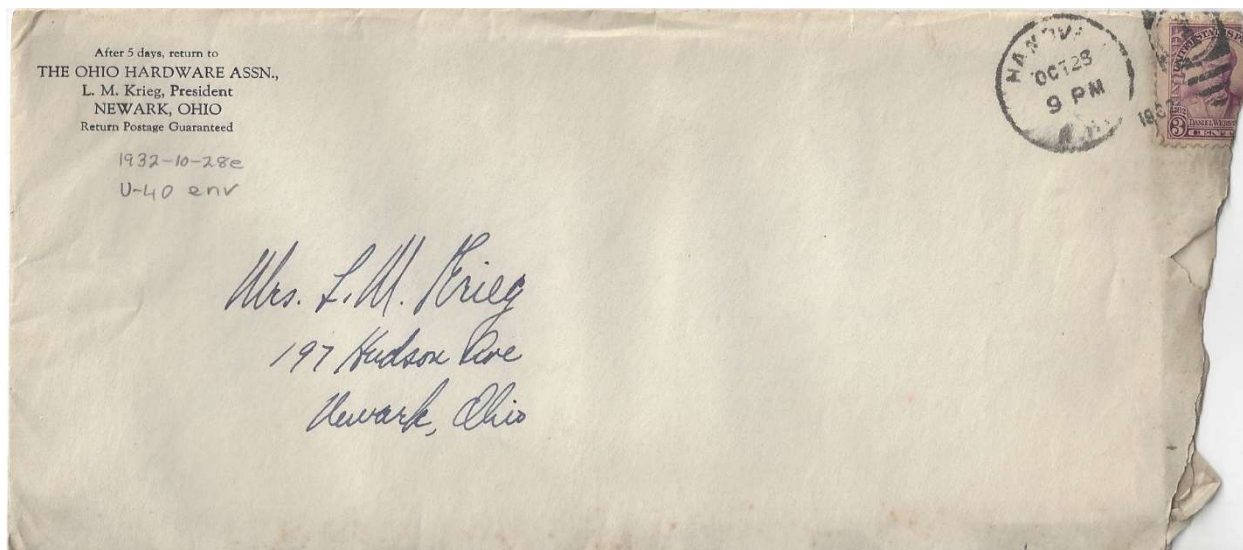 After 5 days, return to
THE OHIO HARDWARE ASSN.,
L. M. Krieg, President
NEWARK, OHIO
Return Postage Guaranteed
1932-10-28e
U-40 env
HANOV
OCT 28
9 PM
N.H.
1932
UNITED STATES P
3
DANIEL WEBS
Mrs. L. M. Krieg
197 Hudson Ave
Newark, Ohio